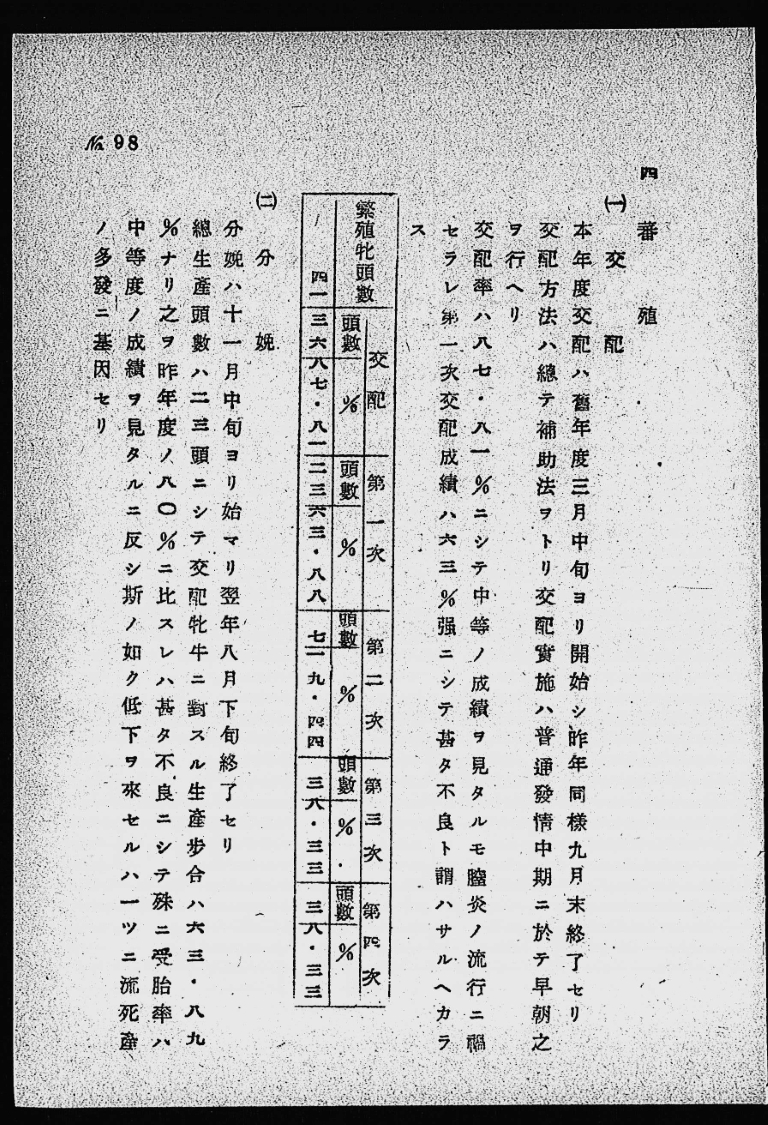 № 98
四 蕃殖
(一) 交配
本年度交配ハ舊年度三月中旬ヨリ開始シ昨年同樣九月末終了セリ
交配方法ハ總テ補助法ヲトリ交配實施ハ普通發情中期ニ於テ早朝之
ヲ行ヘリ
交配率ハ八七・八一%ニシテ中等ノ成績ヲ見タルモ膣炎ノ流行ニ禍
セラレ第一次交配成績ハ六三%强ニシテ甚タ不良ト謂ハサルヘカラ
ス
繁殖牝頭數 交配 第一次 第二次 第三次 第四次
頭數 % 頭數 % 頭數 % 頭數 % 頭數 %
四一 三六 八七・八一 二三 六三・八八 七 一九・四四 三 八・三三 三 八・三三
(二) 分娩
分娩ハ十一月中旬ヨリ始マリ翌年八月下旬終了セリ
總生產頭數ハ二三頭ニシテ交配牝牛ニ對スル生產步合ハ六三・八九
%ナリ之ヲ昨年度ノ八〇%ニ比スレハ甚タ不良ニシテ殊ニ受胎率ハ
中等度ノ成績ヲ見タルニ反シ斯ノ如ク低下ヲ來セルハ一ツニ流死產
ノ多發ニ基因セリ